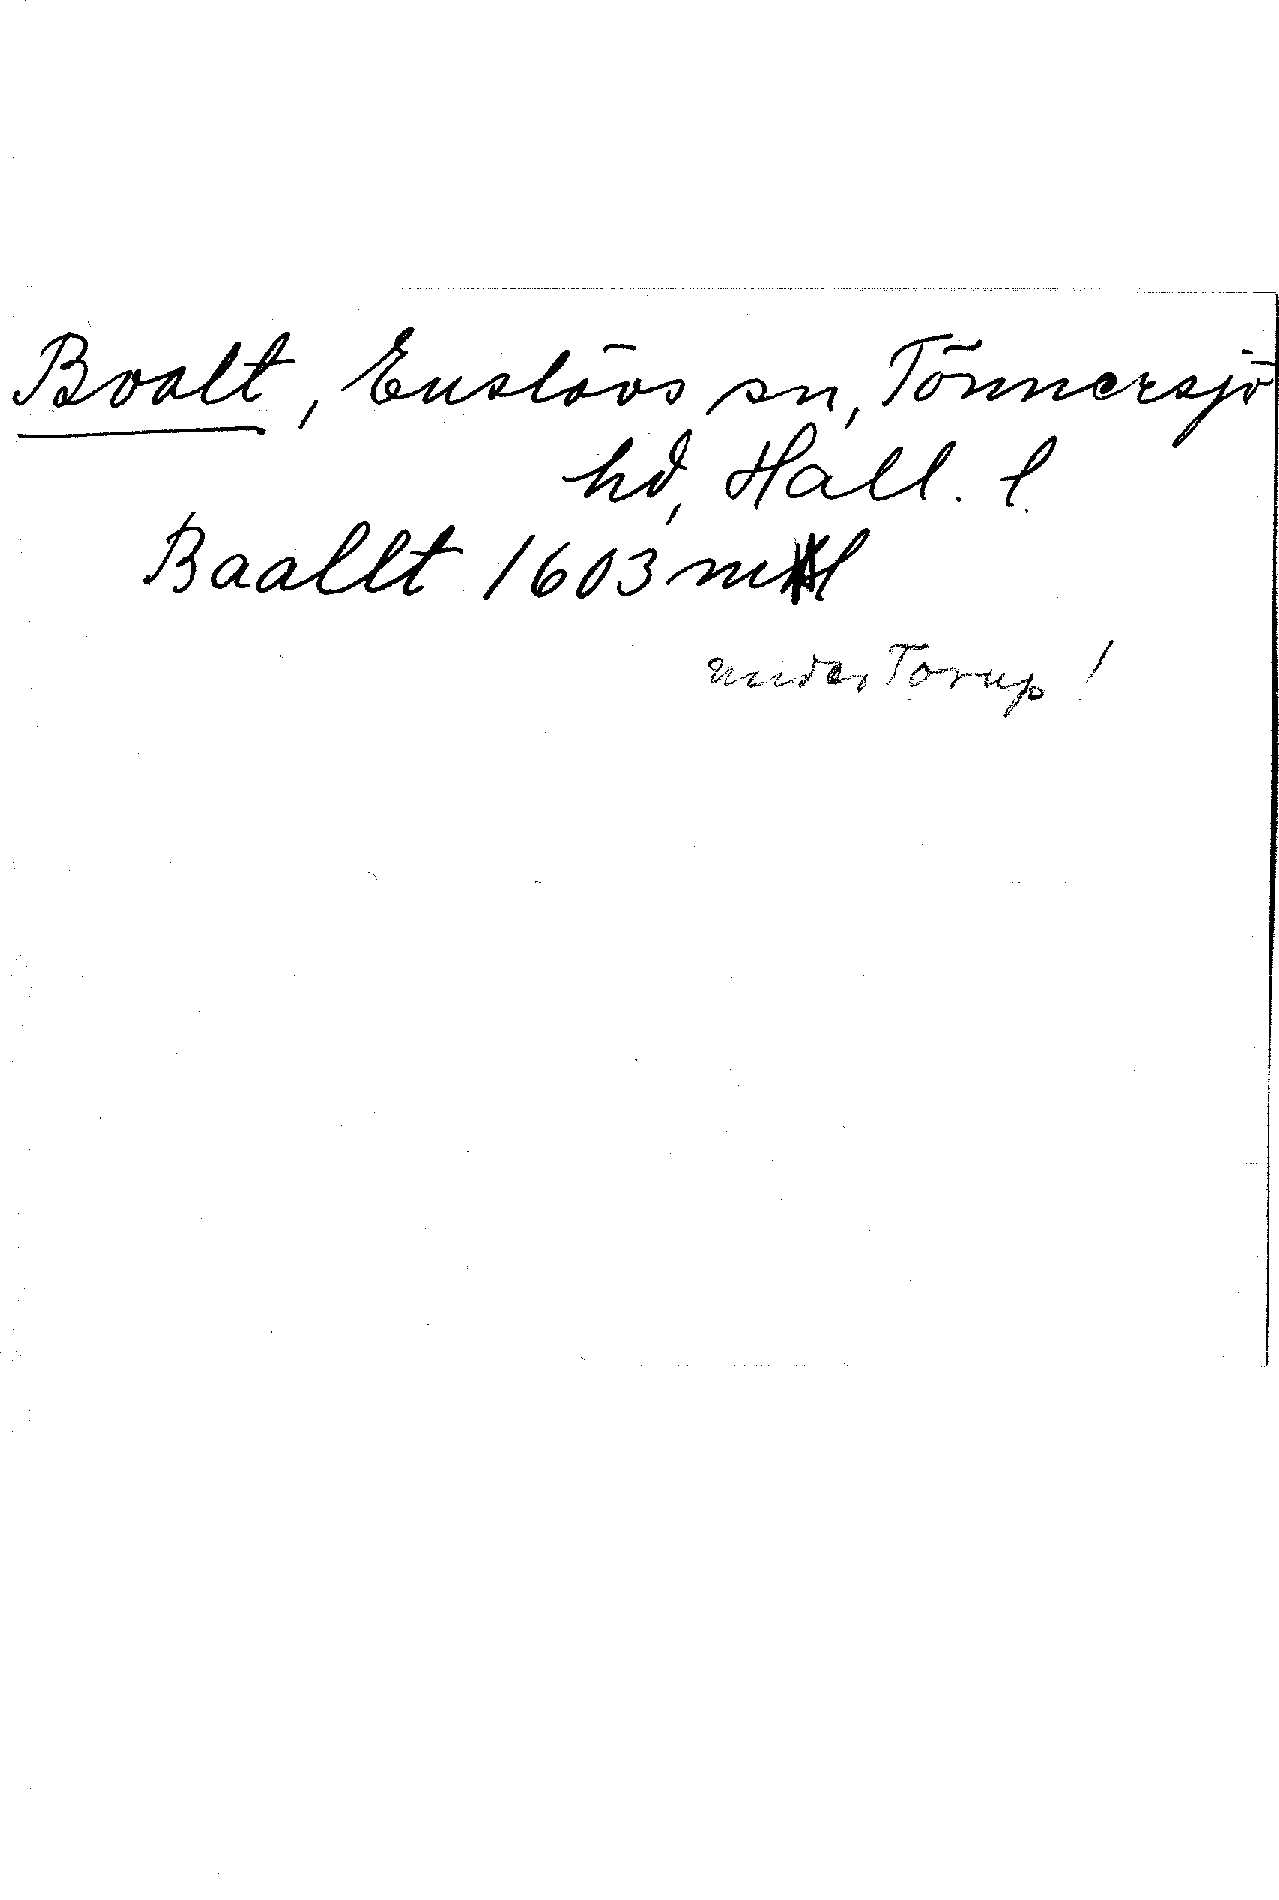 Boalt, Enslövs sn, Tönnersjö
hd, Hall. l.
Baallt 1603 ml
under Torup!